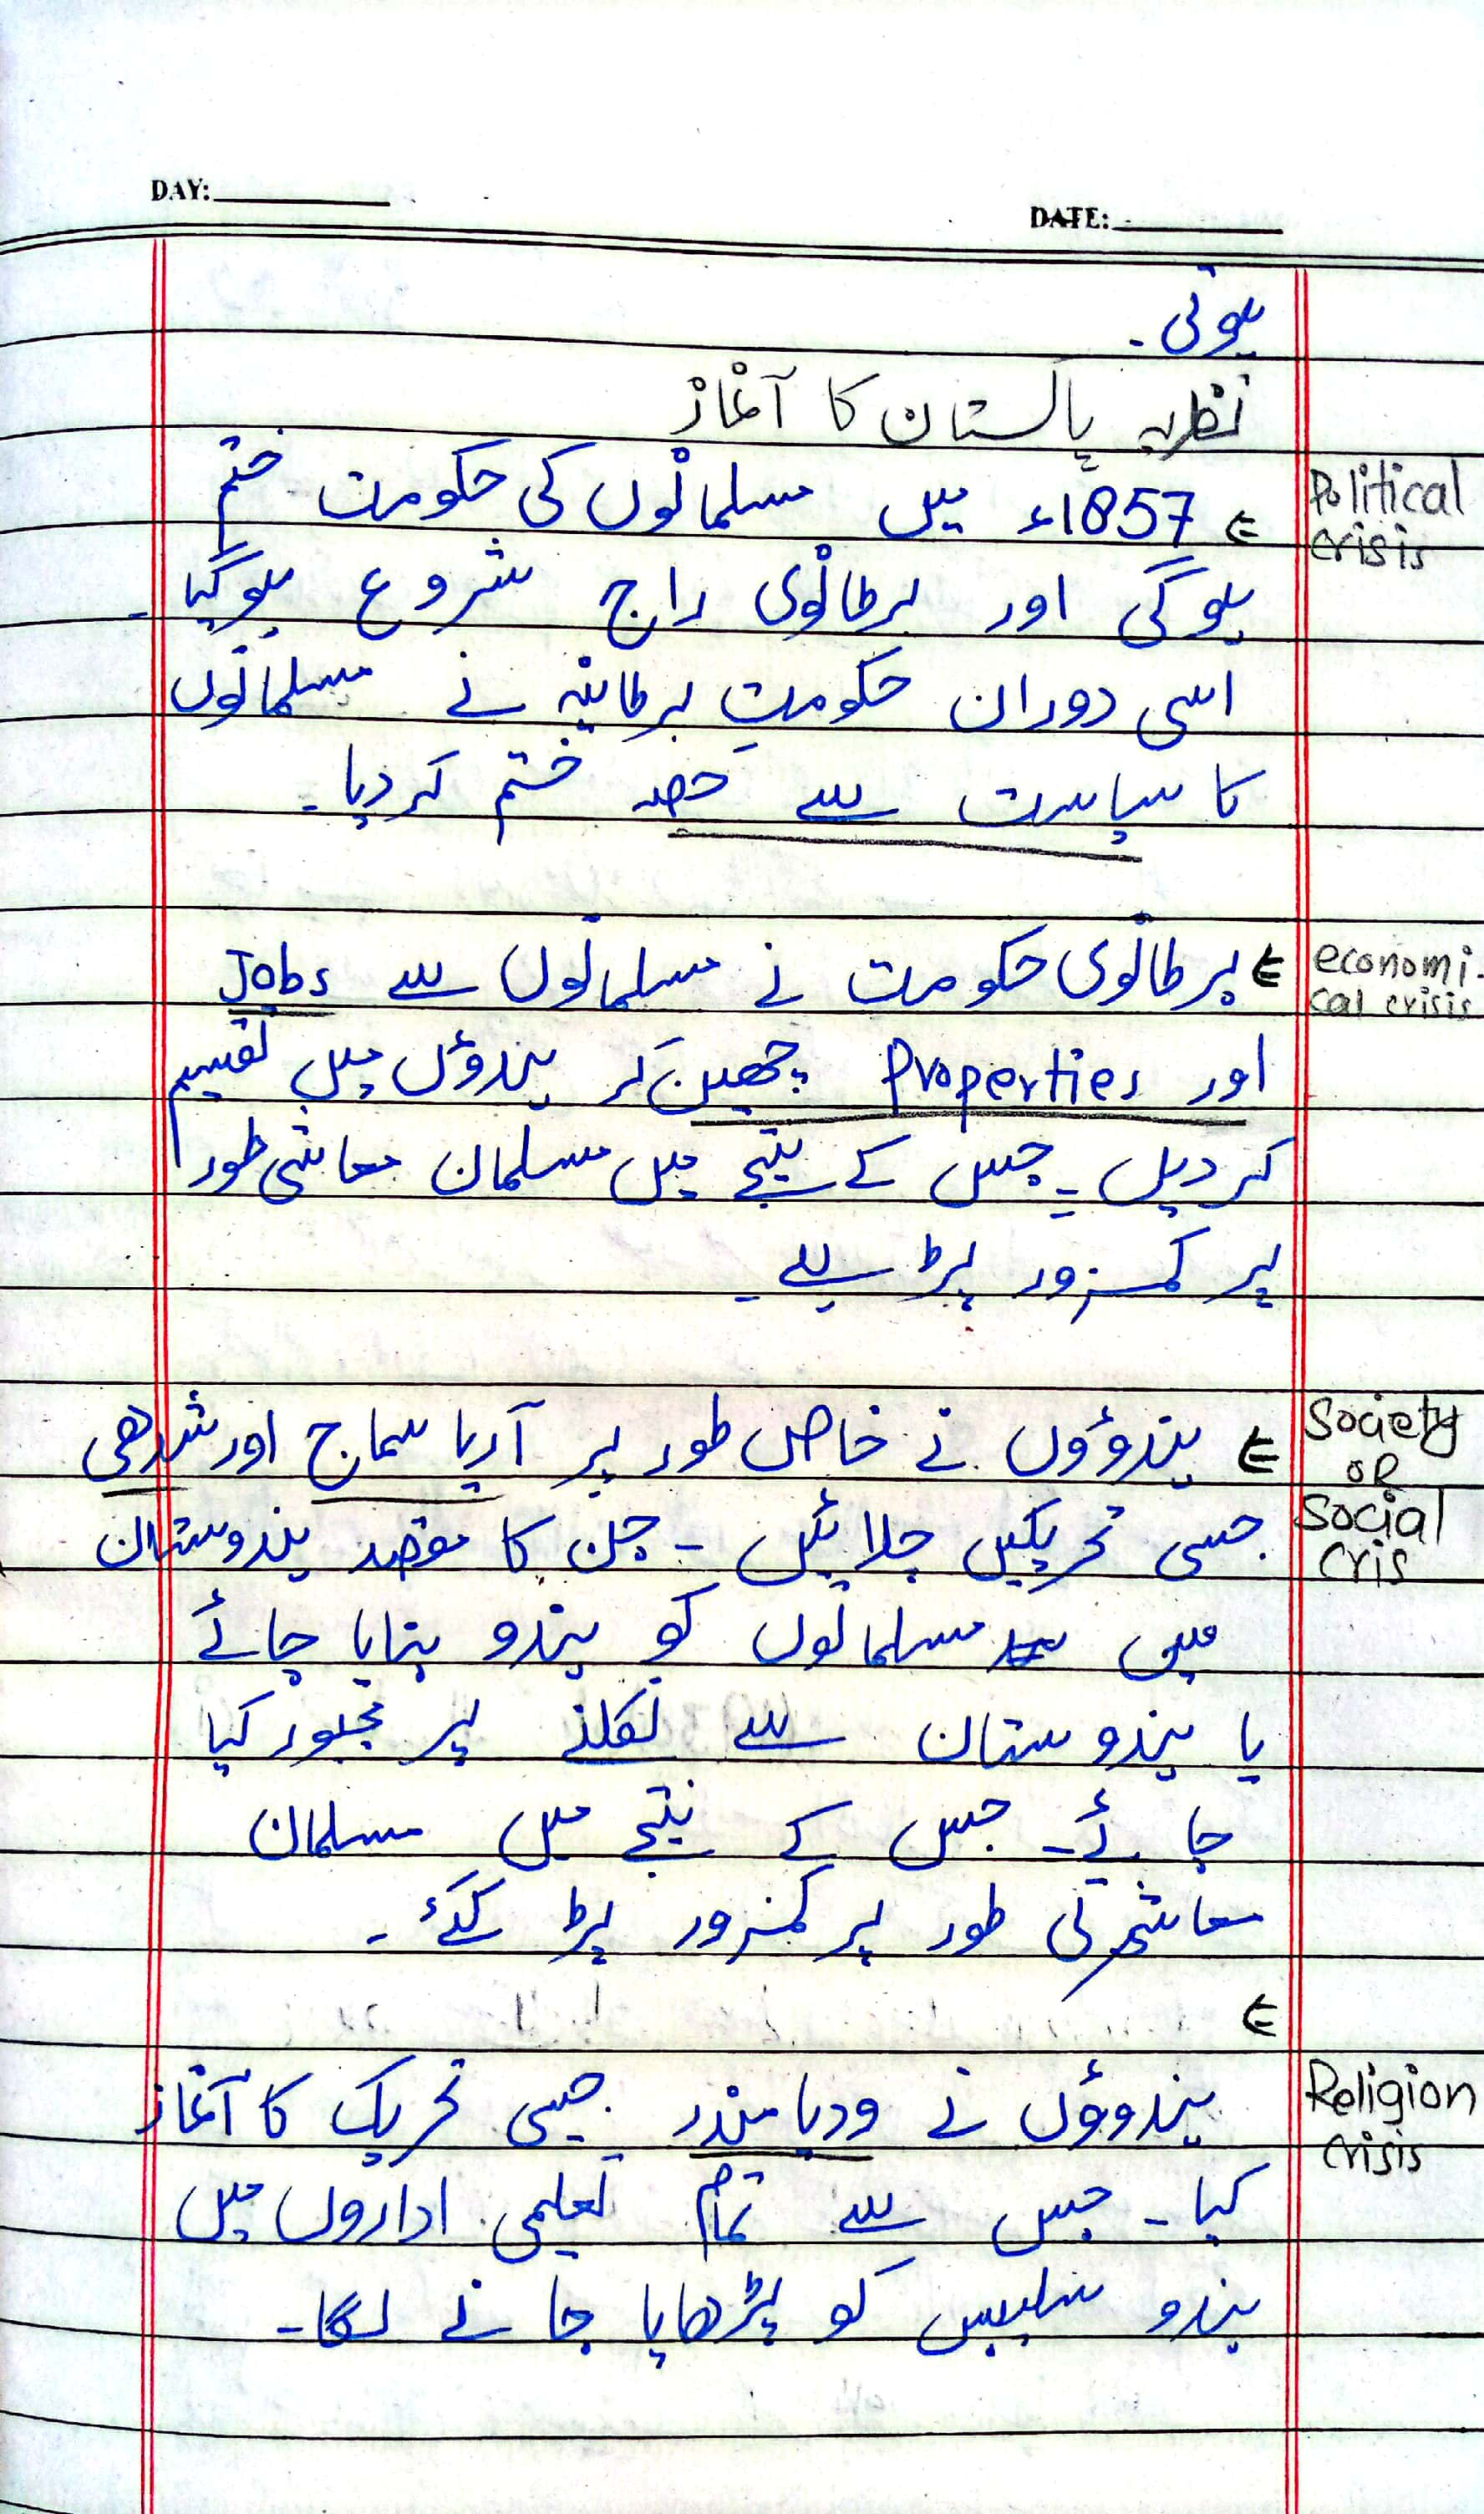 DAY:
DATE:
ہوتی۔
نظریہ پاکستان کا آغاز
Political
crisis
⋲ 1857ء میں مسلمانوں کی حکومت ختم
ہوگی اور برطانوی راج شروع ہوگیا۔
اسی دوران حکومتِ برطانیہ نے مسلمانوں
کا سیاست سے حصہ ختم کردیا۔
economi-
cal crisis
⋲ برطانوی حکومت نے مسلمانوں سے Jobs
اور Properties چھین کر ہندوؤں میں تقسیم
کر دیں۔ جس کے نتیجے میں مسلمان معاشی طور
پر کمزور پڑ
Society
OR
Social
Cris
⋲ ہندوؤں نے خاص طور پر آریا سماج اور شدھی
جیسی تحریکیں چلائیں۔ جن کا مقصد ہندوستان
میں مسلمانوں کو ہندو بنایا جائے
یا ہندوستان سے نکلنے پر مجبور کیا
جائے۔ جس کے نتیجے میں مسلمان
معاشرتی طور پر کمزور پڑ گئے۔
⋲
Religion
crisis
ہندوؤں نے ودیا مندر جیسی تحریک کا آغاز
کیا۔ جس سے تمام تعلیمی اداروں میں
ہندو سلیبس کو پڑھایا جانے لگا۔